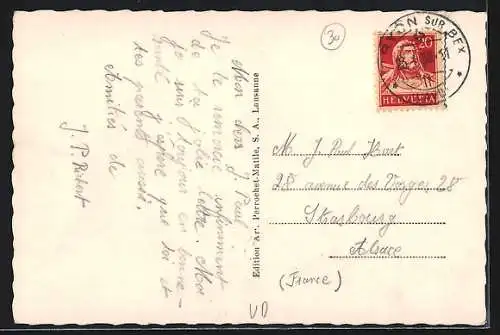 Mon cher J. Paul
Je te remercie infiniment
de ta jolie lettre. Moi
je suis toujours en bonne
santé j'espère que toi et
tes parents aussi.
Amitiés de
J. P.
Edition Art. Perrochet-Matile, S. A., Lausanne
30
SUR BEX
20
HELVETIA
M. J. Paul
28 avenue des Vosges 28
Strasbourg
Alsace
(France)
VD